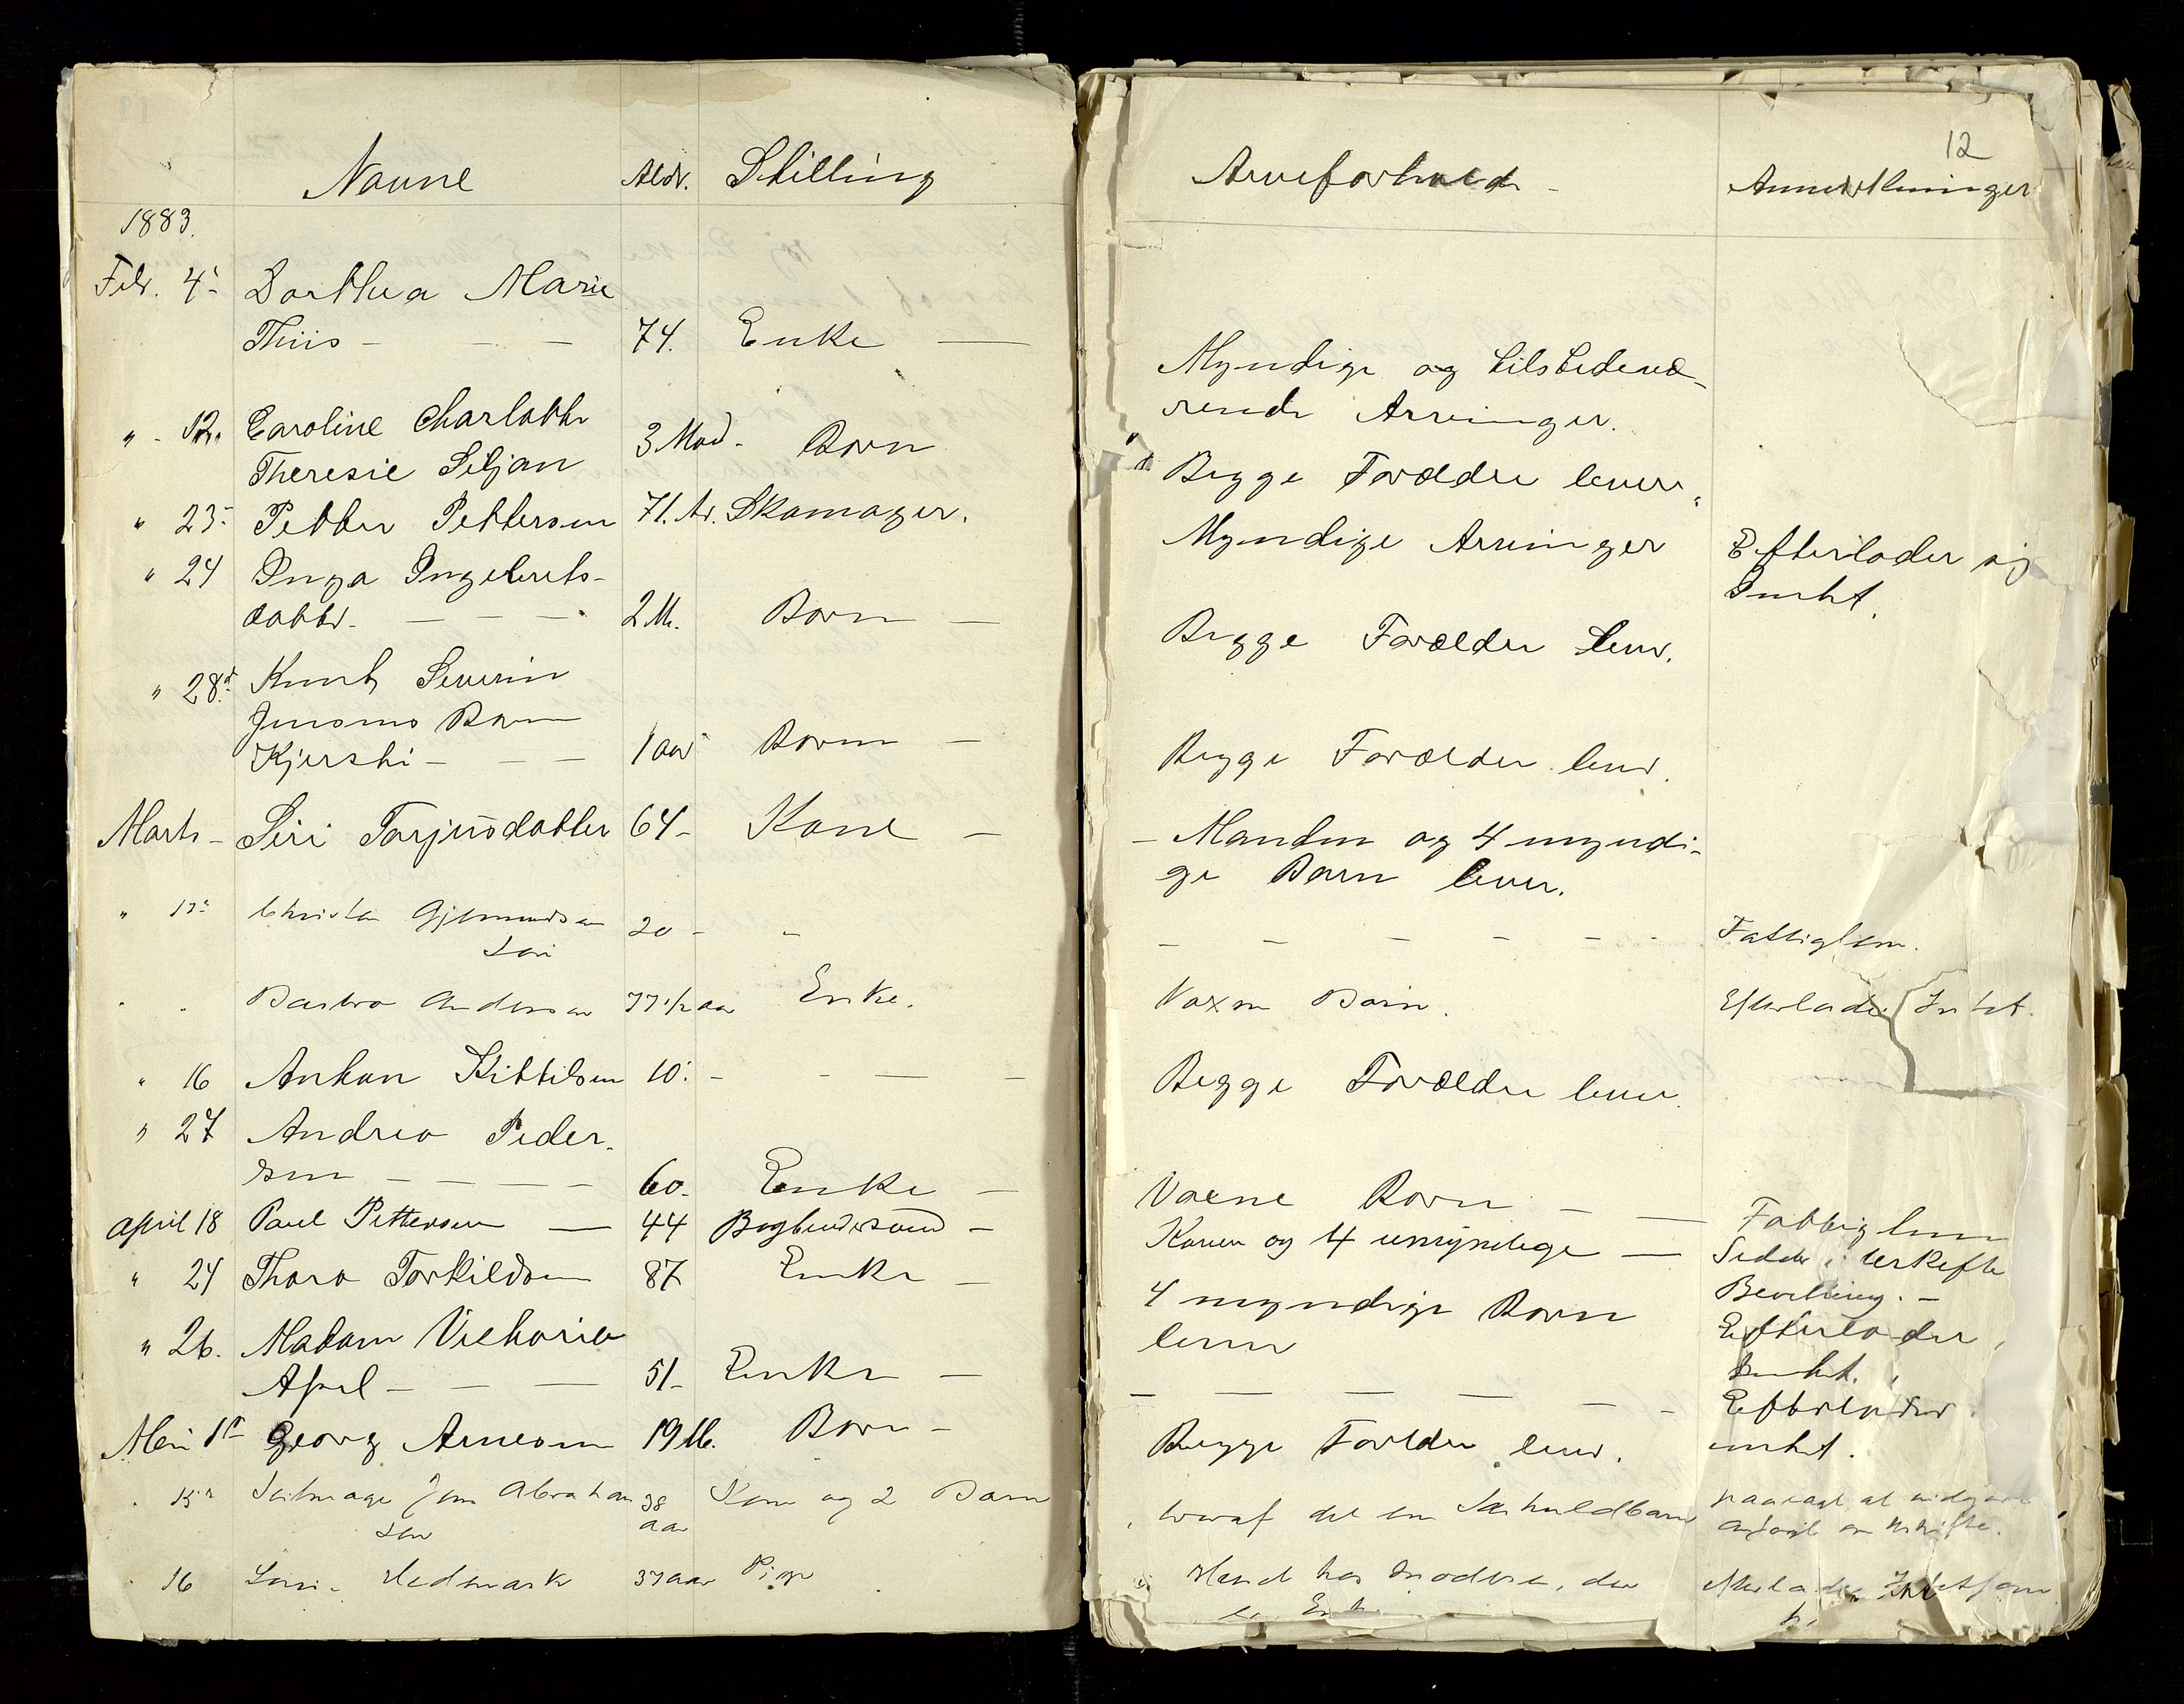 Navne Aldr. Stilling
1883.
Febr. 4de Dorthea Marie
Thiis - - - 74. Enke -
" - 12. Caroline Charlotte
Theresie Siljan 3 Mad. Barn
" 23de Petter Pettersen 71. Ar. Skomager.
" 24 Inga Ingebrets-
datter. - - - 2 M. Barn -
" 28de Knut Severin
Jensens Barn
Kjerski - - - 1 aar Barn -
Marts - Siri Torjusdatter 64 - Kone -
" 13de Gjermundsen 20 - -
Barbro Andersen 77 1/2 aar Enke.
" 16 Anton Kittilsen 10: - - - -
" 27 Andrea Peder-
sen - - - - 60 - Enke -
April 18 Paul Pettersen - 44 Bogbindersvend -
" 24 Thora Torkildsen 87 Enke -
" 26. Madam Victoria
April - - - 51 - Enke -
Mai 1ste Georg Arnesen 19 M. Barn -
15de Jens Abraham 38 Kone og 2 Barn
sen aar
16 Hedmark 37 aar Pige
12
Arveforhold - Anmerkninger
Myndige og tilstedevæ-
rende Arvinger.
Begge Forældre lever.
Myndige Arvinger Efterlader sig
Intet.
Begge Forældre lever.
Begge Forældre lever.
- Manden og 4 myndi-
ge Barn lever.
- - - - - - Fattiglem.
Voxne Barn. Efterlader Intet.
Begge Forældre lever.
Voxne Barn - - Fattiglem
Konen og 4 umyndige - Sidder i uskifte
4 myndige Barn Bevilling. -
lever Efterlader
Intet.
- - - - - - Efterlader
Begge Forældre lever. intet.
hvoraf det en
Hend har Moderen, der Efterlader Intet
er Enke